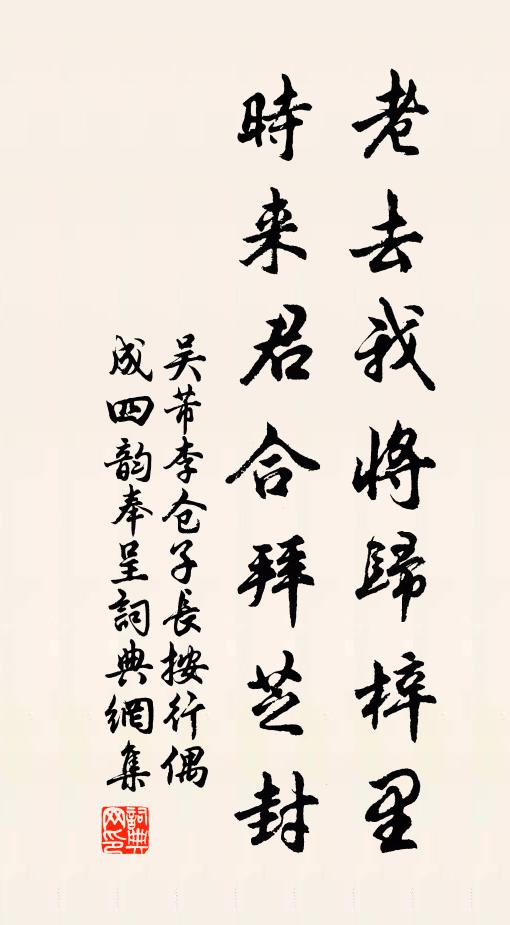 老去我将歸梓里
時来君合拜芝封
吴芾李仓子長按行偶
成四韵奉呈詞典網集
詞典網印